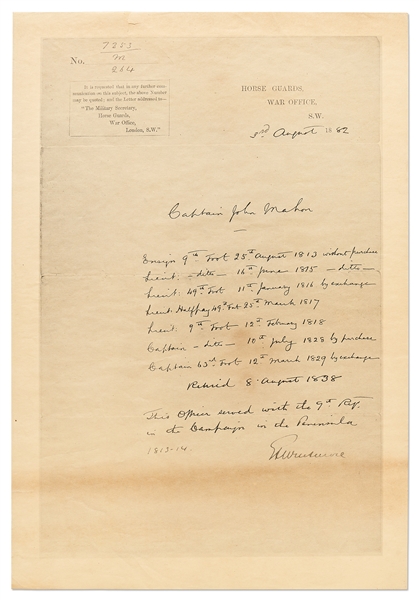 7223
No. M
264
It is requested that in any further com-
munication on this subject, the above Number
may be quoted; and the Letter addressed to—
"The Military Secretary,
Horse Guards,
War Office,
London, S.W."
HORSE GUARDS,
WAR OFFICE,
S.W.
3rd August 1882
Captain John Mahon
Ensign 9th Foot 25th August 1813 without purchase
Lieut: – ditto – 16th June 1815 – ditto –
Lieut: 49th Foot 11th January 1816 by exchange
Lieut: Halfpay 49th Foot 25th March 1817
Lieut: 9th Foot 12th February 1818
Captain – ditto – 10th July 1828 by purchase
Captain 63rd Foot 12th March 1829 by exchange
Retired 8 August 1838
This Officer served with the 9th Reg.
in the Campaign in the Peninsula
1813-14.